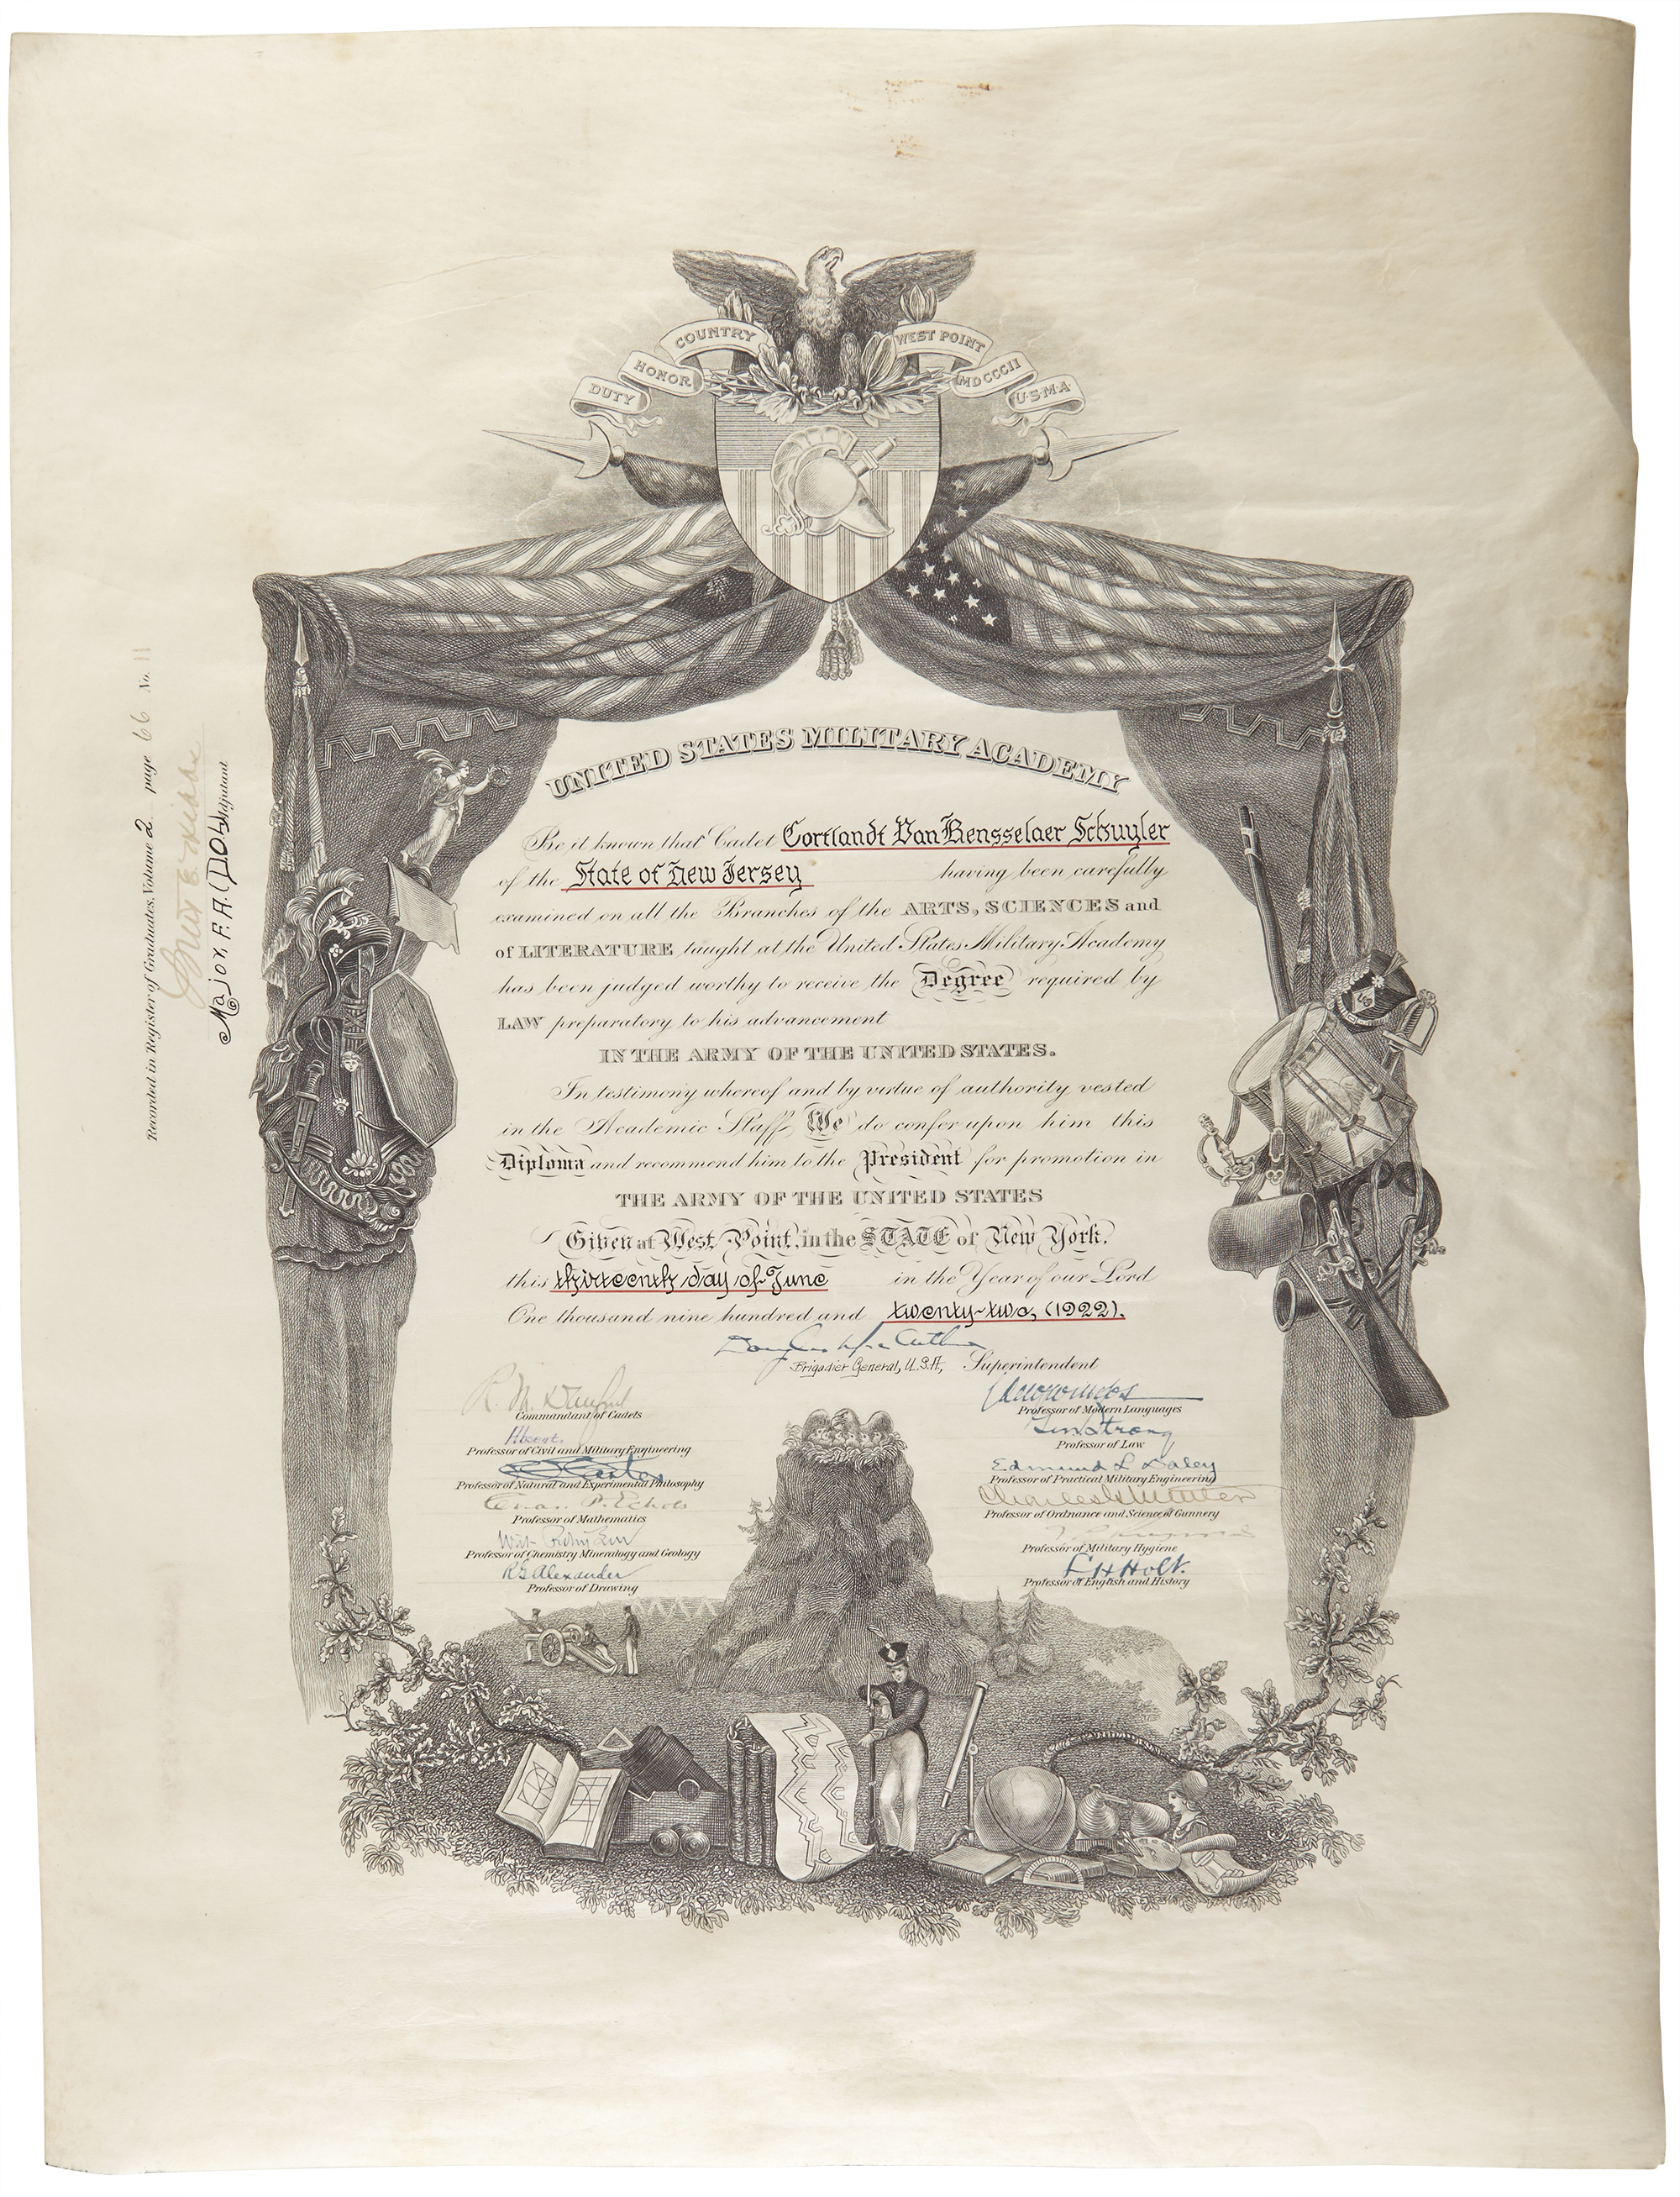 COUNTRY
HONOR
DUTY
WEST POINT
MDCCCII
U·S·M·A·
UNITED STATES MILITARY ACADEMY
Be it known that Cadet Cortlandt Van Rensselaer Schuyler
of the State of New Jersey having been carefully
examined on all the Branches of the ARTS, SCIENCES and
of LITERATURE taught at the United States Military Academy
has been judged worthy to receive the Degree required by
LAW preparatory to his advancement
IN THE ARMY OF THE UNITED STATES.
In testimony whereof and by virtue of authority vested
in the Academic Staff, We do confer upon him this
Diploma and recommend him to the President for promotion in
THE ARMY OF THE UNITED STATES
Given at West Point, in the STATE of New York.
this thirteenth day of June in the Year of our Lord
One thousand nine hundred and twenty-two, (1922).
Douglas MacArthur
Brigadier General, U.S.A., Superintendent
R. M. Danford
Commandant of Cadets
Absent.
Professor of Civil and Military Engineering
Professor of Natural and Experimental Philosophy
Chas. P. Echols
Professor of Mathematics
Professor of Chemistry Mineralogy and Geology
R G Alexander
Professor of Drawing
Professor of Modern Languages
Strong
Professor of Law
Edmund L Daley
Professor of Practical Military Engineering
Professor of Ordnance and Science of Gunnery
Professor of Military Hygiene
L H Holt.
Professor of English and History
Recorded in Register of Graduates, Volume 2 page 66 No. 11
Major, F. A. (DOL) Adjutant